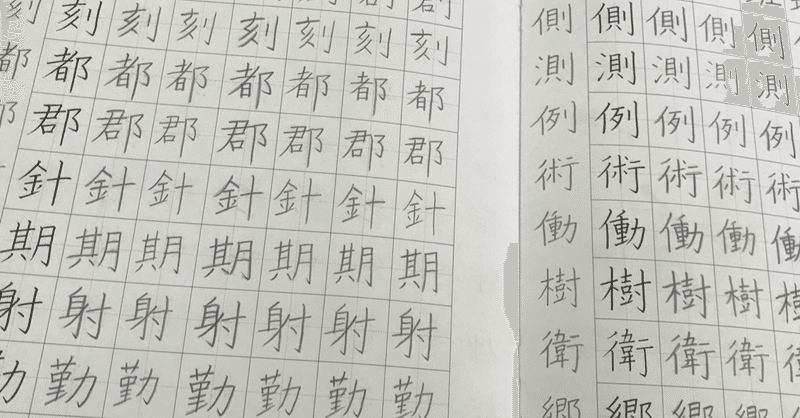 刻刻刻刻刻刻刻刻
都都都都都都都都
郡郡郡郡郡郡郡
針針針針針針針
期期期期期期期
射射射射射射射
勤勤勤勤勤勤勤
側側側側側
測測測測測
例例例例例
術術術術術
働働働働働
樹樹樹樹樹
衛衛衛衛衛
郷郷郷郷